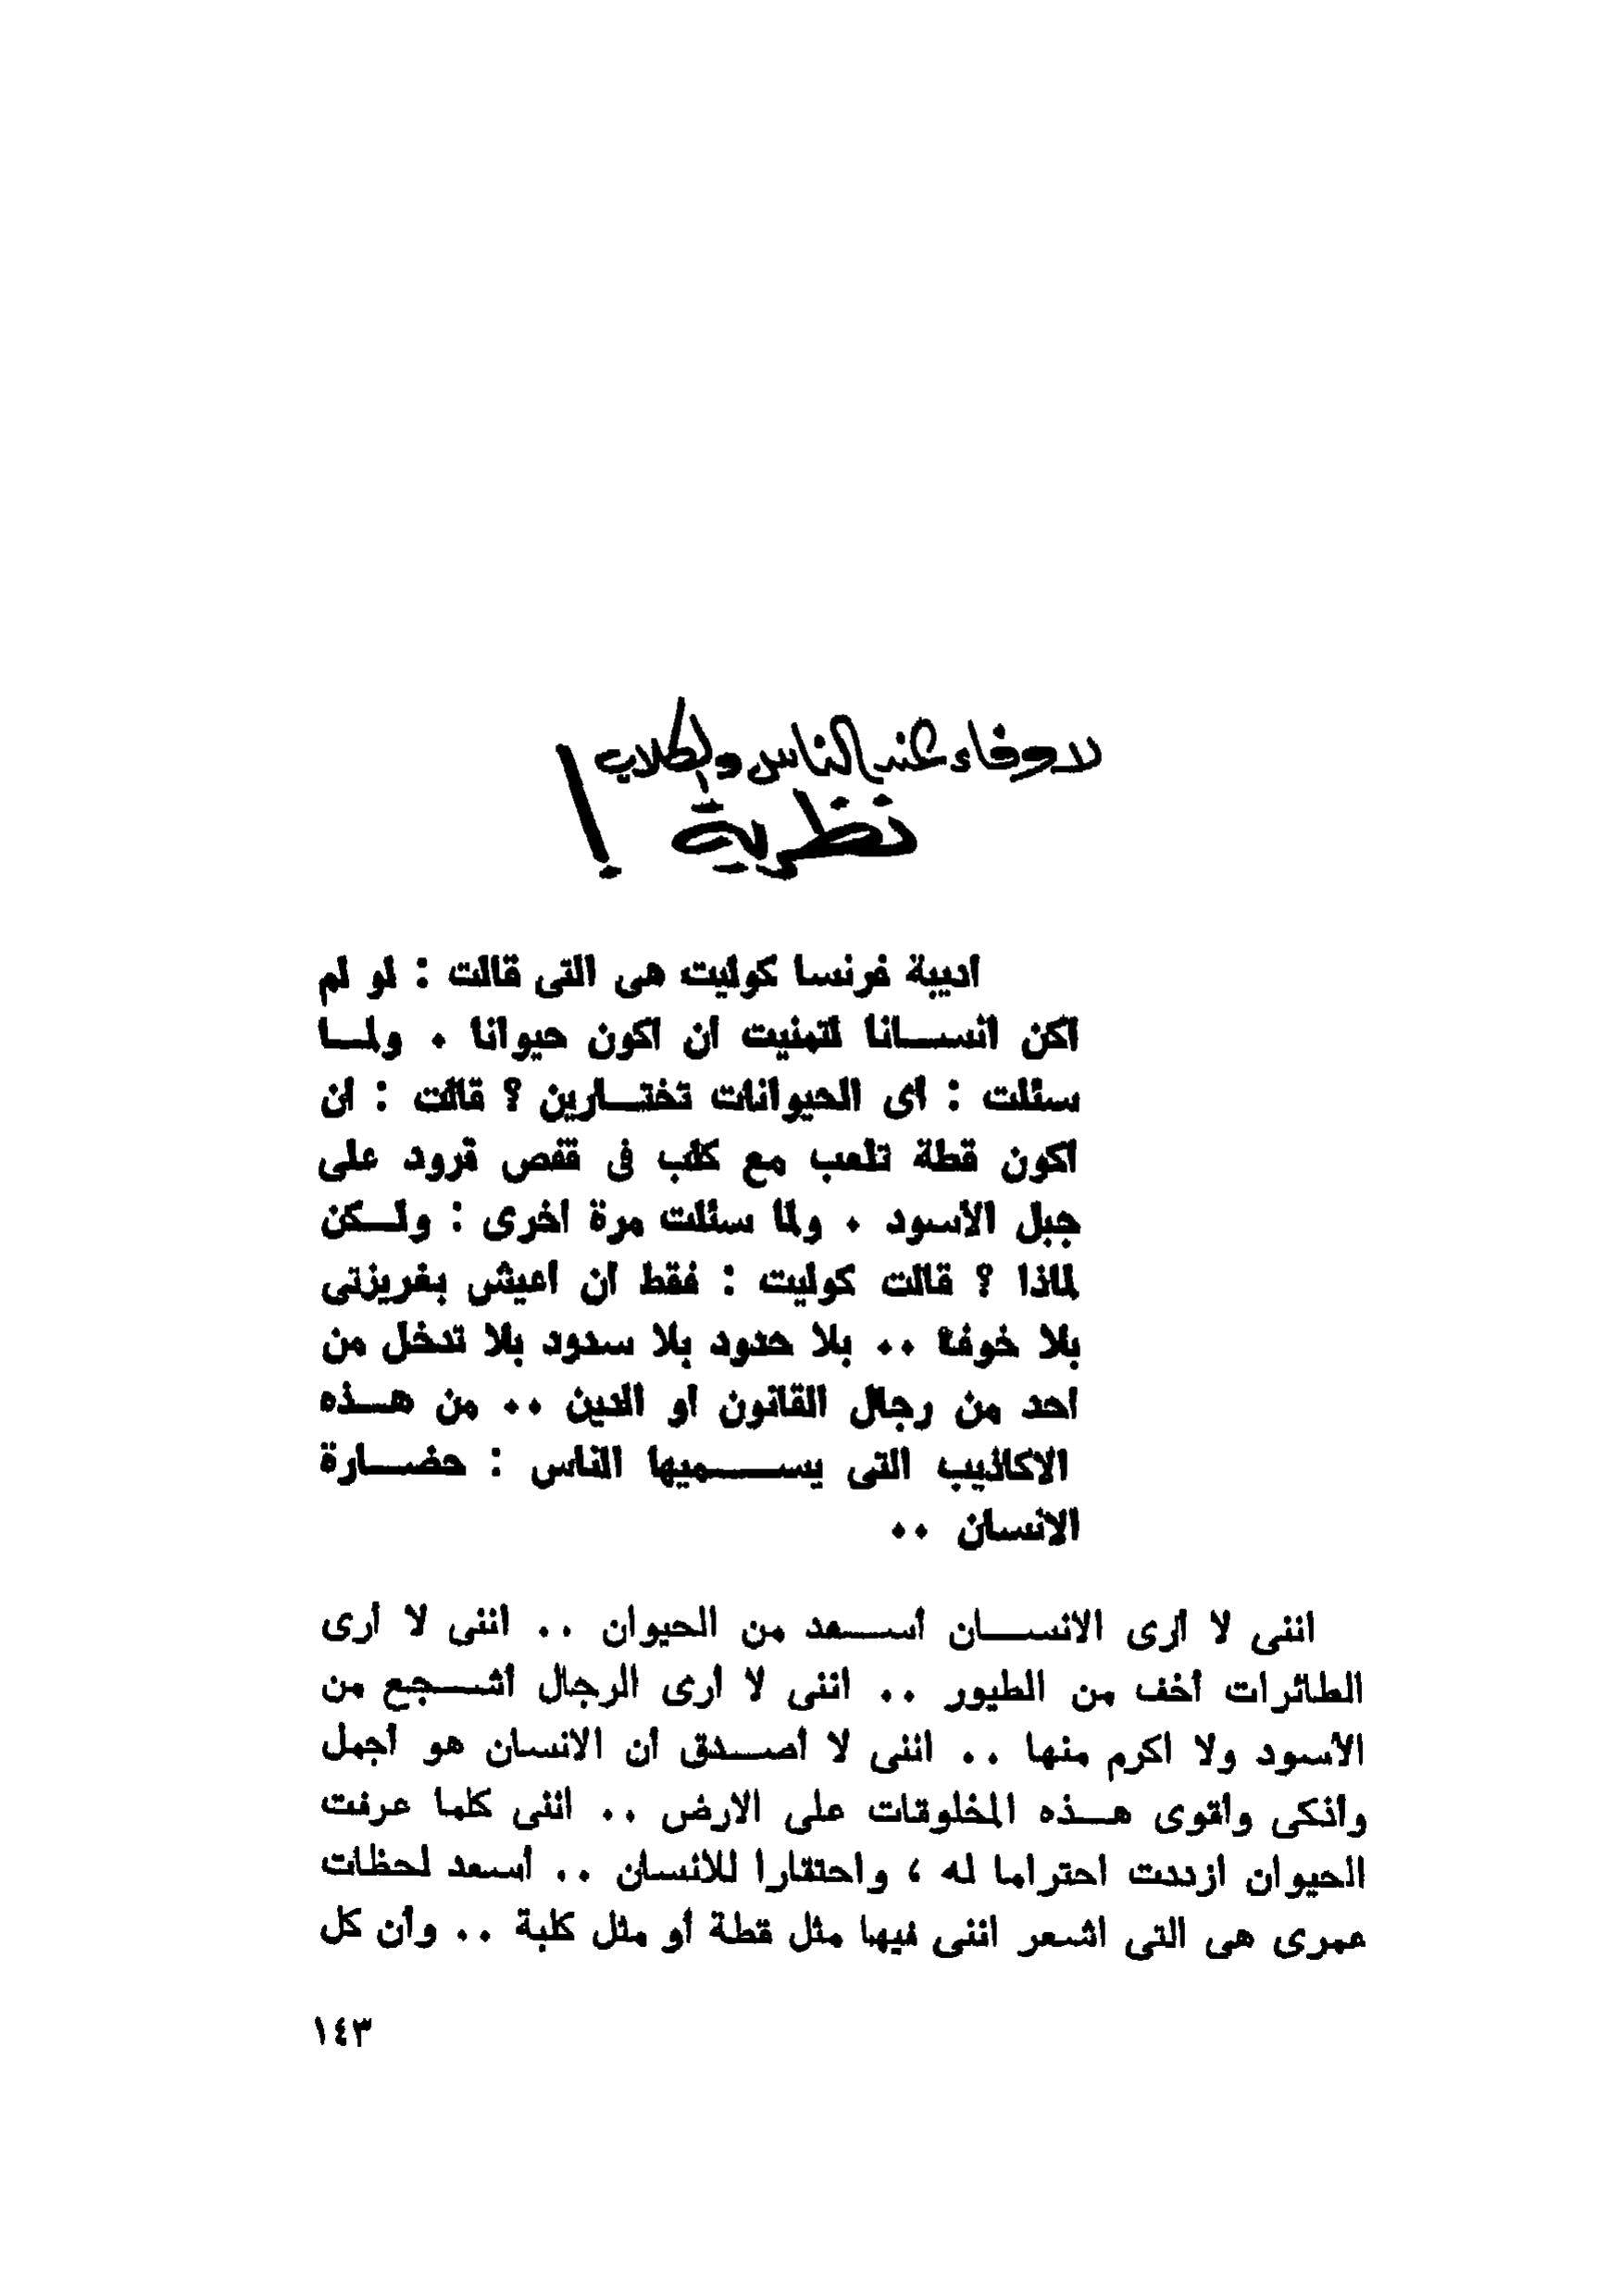 لا وفاء عند الناس والكلاب
نظرية !
اديبة فرنسا كوليت هى التى قالت : لو لم
اكن انسانا لتمنيت ان اكون حيوانا . ولما
سئلت : اى الحيوانات تختارين ؟ قالت : ان
اكون قطة تلعب مع كلب فى قفص قرود على
جبل الأسود . ولما سئلت مرة اخرى : ولكن
لماذا ؟ قالت كوليت : فقط ان اعيش بغريزتى
بلا خوف .. بلا حدود بلا سدود بلا تدخل من
احد من رجال القانون او الدين .. من هذه
الاكاذيب التى يسميها الناس : حضارة
الانسان ..
اننى لا أرى الانسان أسعد من الحيوان .. اننى لا أرى
الطائرات أخف من الطيور .. اننى لا أرى الرجال أشجع من
الأسود ولا اكرم منها .. اننى لا أصدق أن الانسان هو أجمل
وأذكى وأقوى هذه المخلوقات على الارض .. اننى كلما عرفت
الحيوان ازددت احتراما له ، واحتقارا للانسان .. أسعد لحظات
عمرى هى التى اشعر اننى فيها مثل قطة أو مثل كلبة .. وأن كل
١٤٣